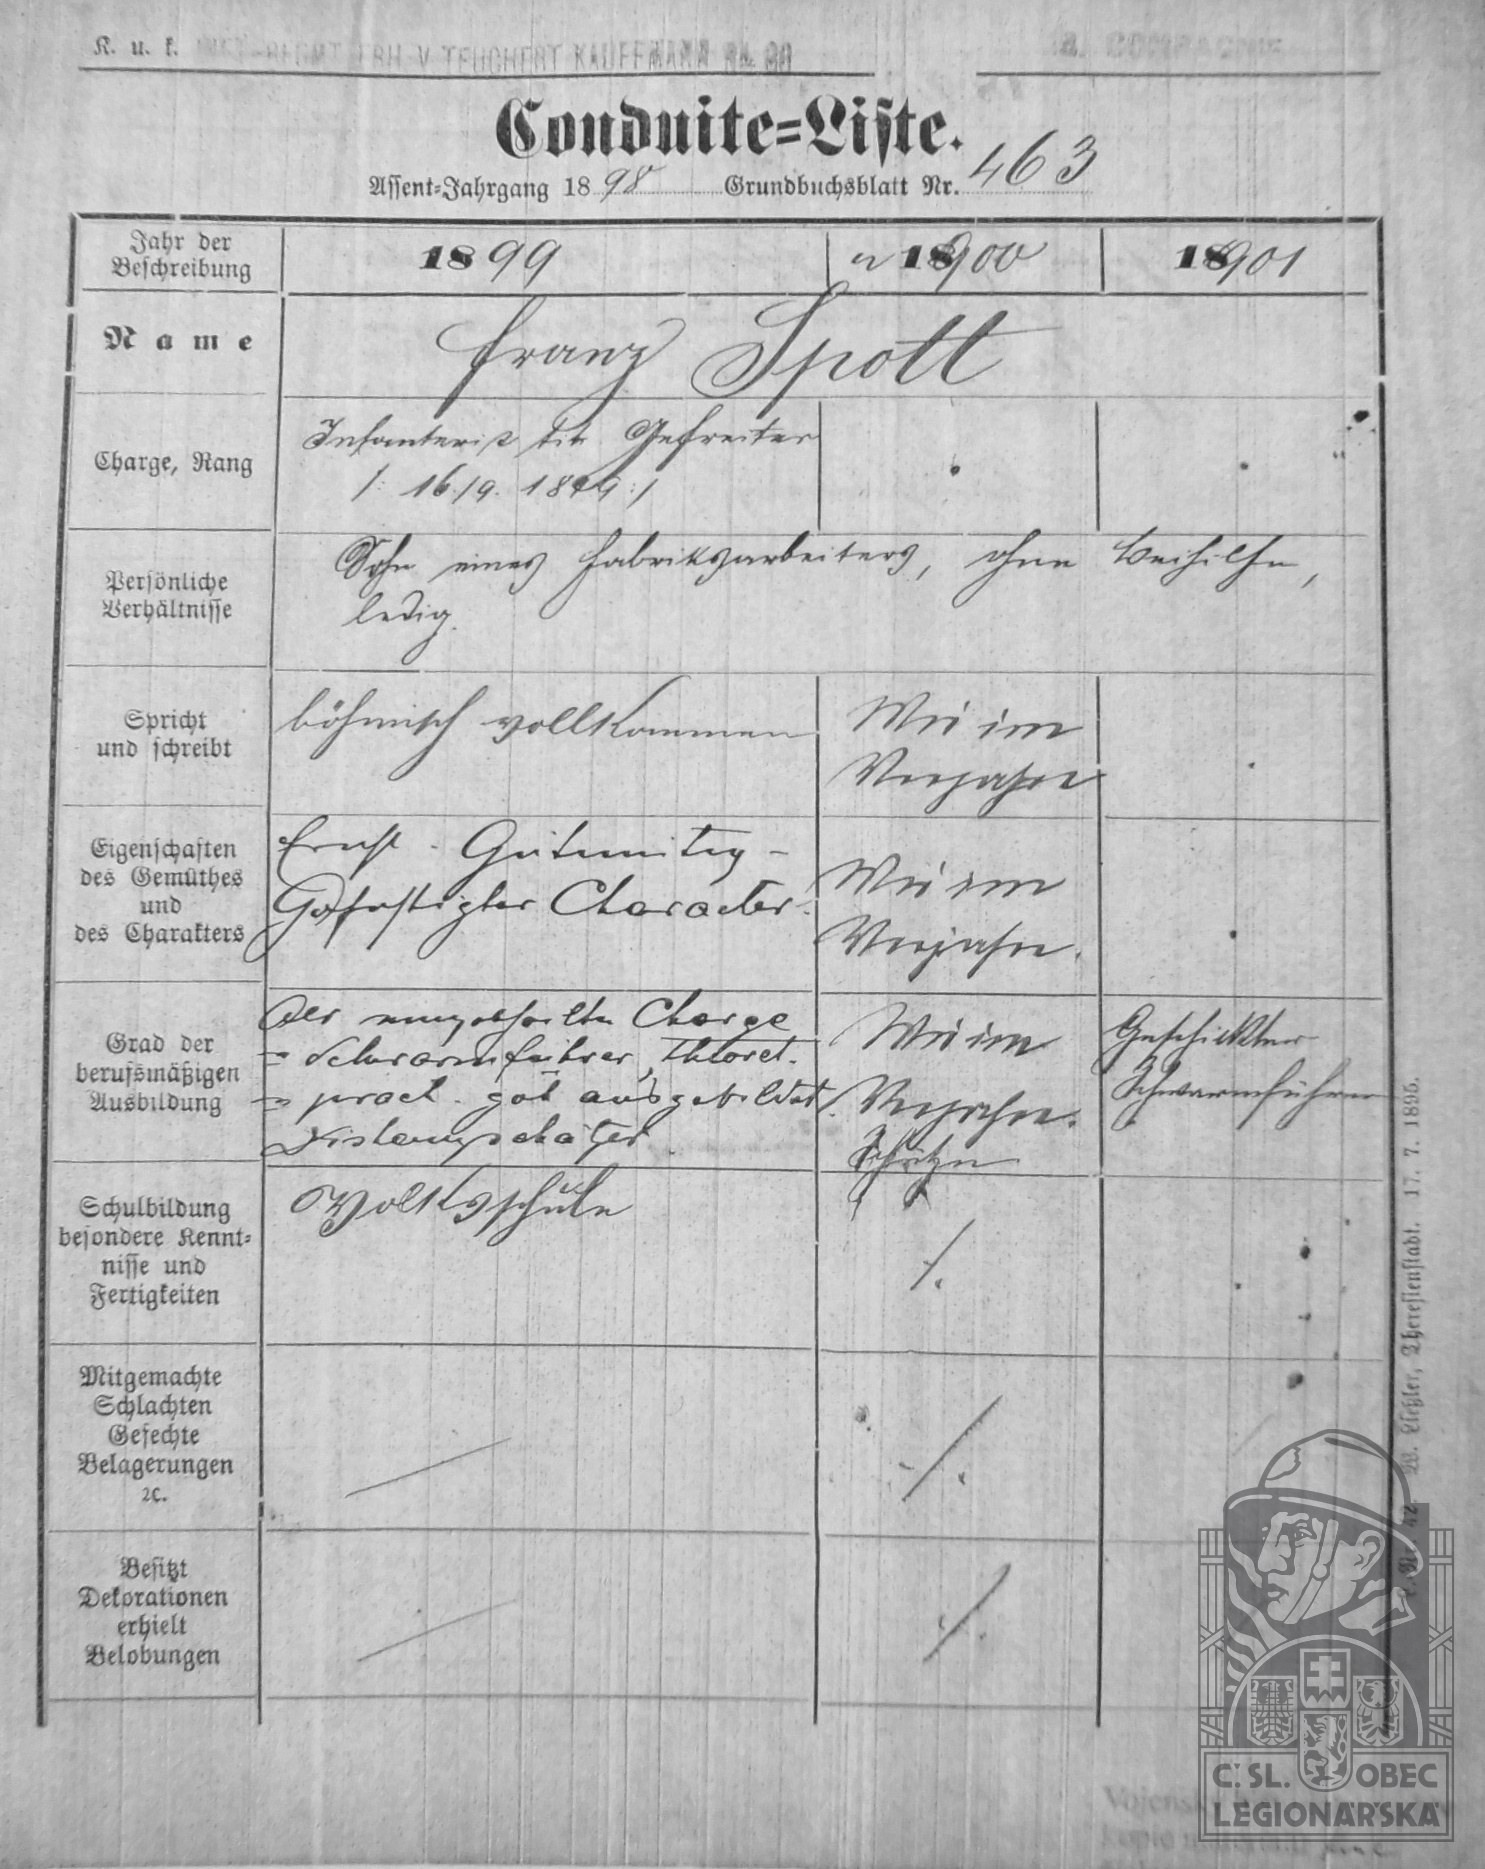 K. u. k. INFT-REGMT FRH. V. TEUCHERT KAUFFMANN Nr. 88
COMPAGNIE
Conduite=Liste.
Assent=Jahrgang 1898 Grundbuchsblatt Nr. 463
Jahr der
Beschreibung
1899
1900
1901
Name
Franz Spott
Charge, Rang
Infanterist tit. Gefreiter
/: 16./9. 1899 :/
Persönliche
Verhältnisse
Sohn eines Fabriksarbeiters, ohne Beihilfe,
ledig.
Spricht
und schreibt
böhmisch vollkommen
Wie im
Vorjahre
Eigenschaften
des Gemüthes
und
des Charakters
Ernst - Gutmütig -
Gefestigter Character.
Wie im
Vorjahre.
Grad der
berufsmäßigen
Ausbildung
Als Charge
= Schwarmführer, theoret.
= pract. gut ausgebildet.
Distanzschätzer
Wie im
Vorjahre.
Schütze
Geschickter
Schwarmführer
Schulbildung
besondere Kennt=
nisse und
Fertigkeiten
Volksschule
Mitgemachte
Schlachten
Gefechte
Belagerungen
2c.
Besitzt
Dekorationen
erhielt
Belobungen
Theresienstadt. 17. 7. 1895.
Č.SL. OBEC
LEGIONÁŘSKÁ